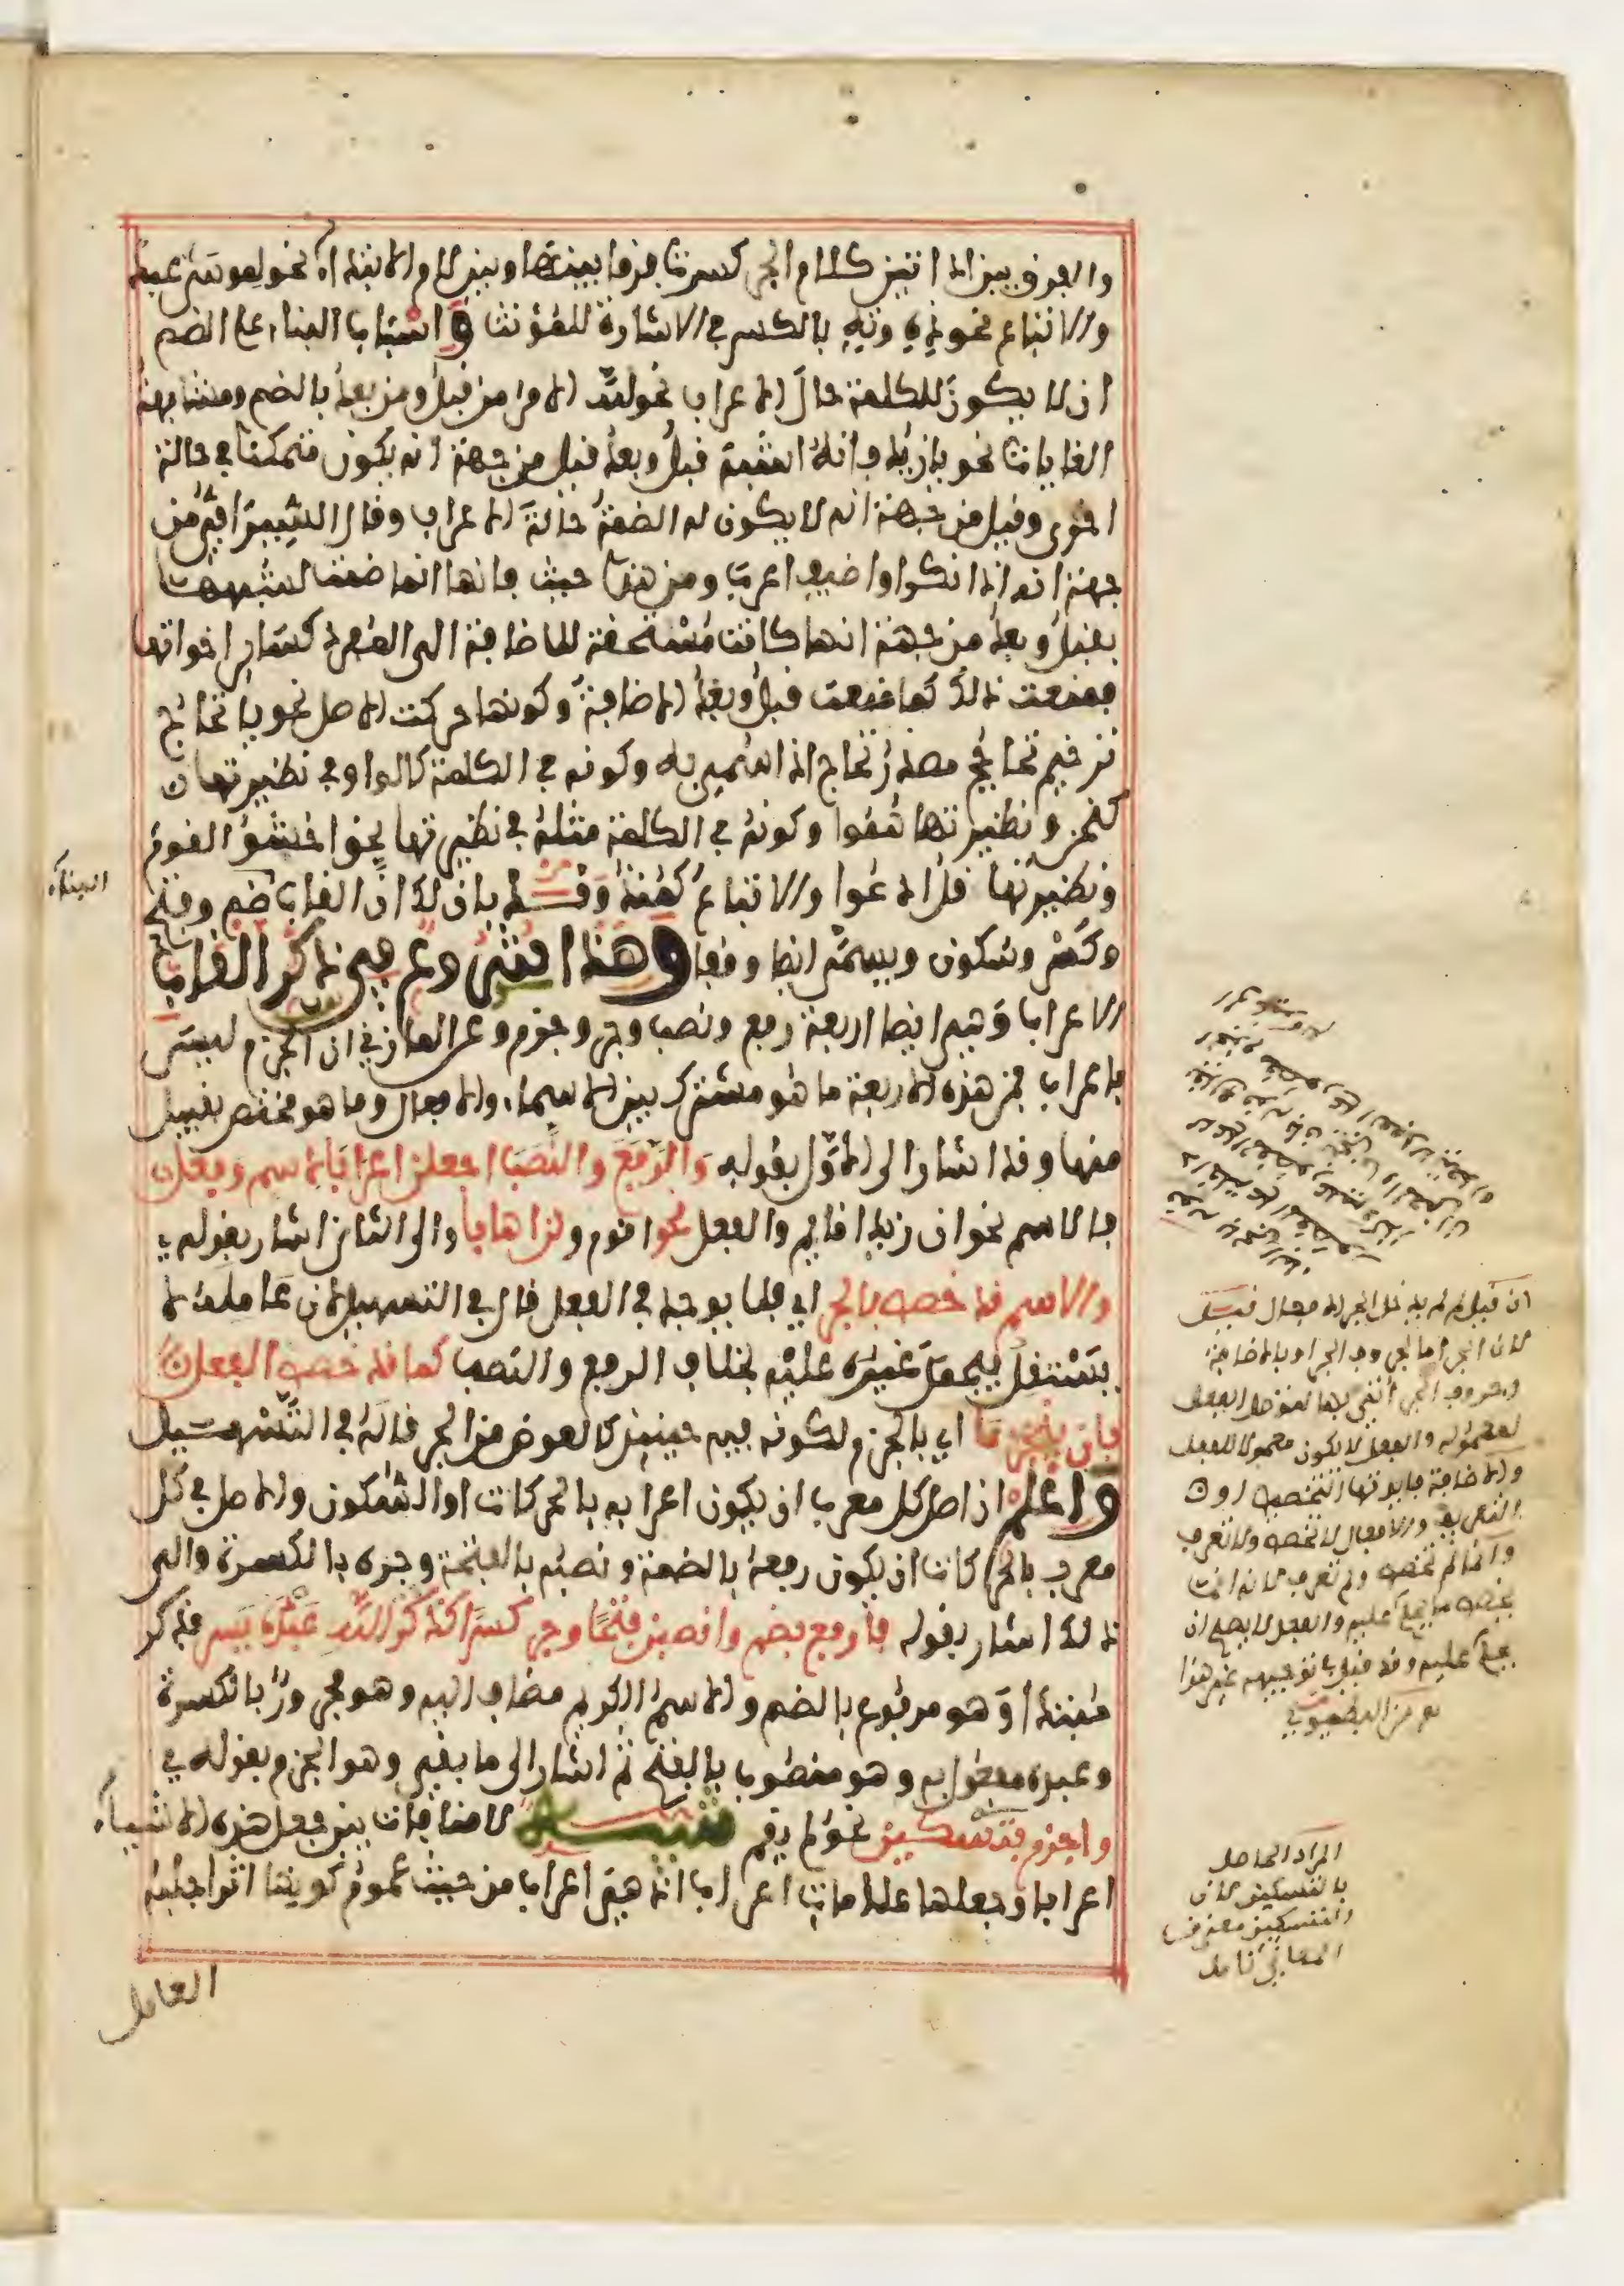 والفرق بين اداتين كلام الجر كسرت فرقا بينها وبين لام الابتداء نحو لموسى عبد
والاتباع نحو ذه وته بالكسر في الاشارة للمؤنث واسباب البناء على الضم
ان لا يكون للكلمة حال الاعراب نحو لله الامر من قبل ومن بعد بالضم ومشابهة
الغايات نحو يا زيد فانه اشبه قبل وبعد قيل من جهة انه يكون متمكنا في حالة
اخرى وقيل من جهة انه لا يكون له الضمة حالة الاعراب وقال السيرافي من
جهة انه اذا نكر او اضيف اعرب ومن هذا حيث فانها انما ضمت لشبهها
بقبل وبعد من جهة انها كانت مستحقة للاضافة الى المفرد كسائر اخواتها
فمنعت ذلك كما منعت قبل وبعد الاضافة وكونها حركت الاصل نحو يا تحاج
ترخيم تحاجج مصدر تحاج اذا سمي به وكونه في الكلمة كالواو في نظيرتها
كنحن ونظيرتها همو وكونه في الكلمة مثله في نظيرتها نحو اخشو القوم
ونظيرتها قل ادعوا والاتباع كمنذ وقد بان لك ان القاب ضم وفتح
البناء
وكسر وسكون ويسمى ايضا وقفا وهذا افشى وع في ذكر القاب
الاعراب وهي ايضا اربعة رفع ونصب وجر وجزم وعن المازني ان الجزم ليس
باعراب فمن هذه الاربعة ما هو مشترك بين الاسماء والافعال وما هو مختص بقبيل
منها وقد اشار الى الاول بقوله والرفع والنصب اجعلن اعرابا لاسم وفعل
فالاسم نحو ان زيدا قائم والفعل نحو اقوم ولن اهابا والى الثاني اشار بقوله
والاسم قد خصص بالجر اي فلا يوجد في الفعل قال في التسهيل لان عامله لا
يستقل فيحمل غيره عليه بخلاف الرفع والنصب كما قد خصص الفعل
بان ينجزما اي بالجزم لكونه فيه حينئذ كالعوض من الجر قاله في التسهيل
واعلم ان اصل كل معرب ان يكون اعرابه بالحركات او السكون والاصل في كل
معرب بالحركات ان يكون رفعه بالضمة ونصبه بالفتحة وجره بالكسرة والى
ذلك اشار بقوله فارفع بضم وانصبن فتحا وجر كسرا كذكر الله عبده يسر فذكر
مبتدأ وهو مرفوع بالضم والاسم الكريم مضاف اليه وهو مجرور بالكسرة
وعبده مفعول به وهو منصوب بالفتح ثم اشار الى ما بقي وهو الجزم بقوله
واجزم بتسكين نحو لم يقم تنبيه لا منافات بين جعل هذه الاشياء
اعرابا وجعلها علامات اعراب اذ هي اعراب من حيث عموم كونها اثرا جلبه
العامل
ان قيل لم لم يدخل الجر الافعال قيل
لان الجر اما بحروف الجر او بالاضافة
وحروف الجر انتفى
لمعموله والفعل لا يكون معمولا للفعل
والاضافة فايدتها التخصيص او
التعريف والافعال لا تخصص ولا تعرف
وانما لم تخصص ولم تعرف لانه انما
يخصص ما يحكم عليه والفعل لا يصح ان
يحكم عليه وقد قيل بتوجيهه غير هذا
المراد الحاصل
بالتسكين لان
التسكين معنى من
المعاني تامل